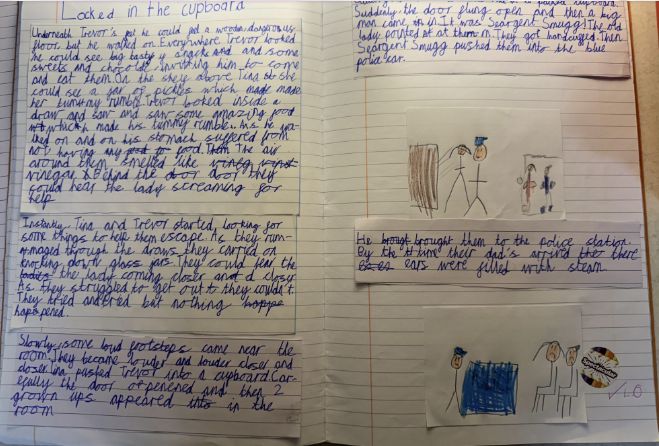 Locked in the cupboard
Underneath Trevor's feet he could feel a wooden, dangerous
floor but he walked on. Everywhere Trevor looked
he could see big tasty snacks and and some
sweets and chocolate inviting him to come
and eat them. On the shelf above Tina she
could see a jar of pickles which made made
her tummy rumble. Trevor looked inside a
draw and saw and saw some amazing food
which made his tummy rumble. As he wa-
lked on and on his stomach suffered from
not having any food. The air
around them smelled like
vinegar. Behind the door they
could hear the lady screaming for
help
Instantly, Tina and Trevor started looking for
some things to help them escape. As they rum-
maged through the draws, they carried on
knocking down glass jars. They could hear the
ladies the lady coming closer and closer.
As they struggled to get out they couldn't.
They tried and tried but nothing happe
happened.
Slowly, some loud footsteps came near the
room. They became louder and louder closer and
closer. Tina pushed Trevor into a cupboard. Car-
efully the door opened and then 2
grown ups appeared into in the
room
cupboard.
Suddenly, the door flung open and then a big
man came in. It was Seargent Smugg! The old
lady pointed at at them. They got handcuffed. Then
Seargent Smugg pushed them into the blue
police car.
He brougt brought them to the police station.
By the time their dad's arrived there
ears were filled with steam.